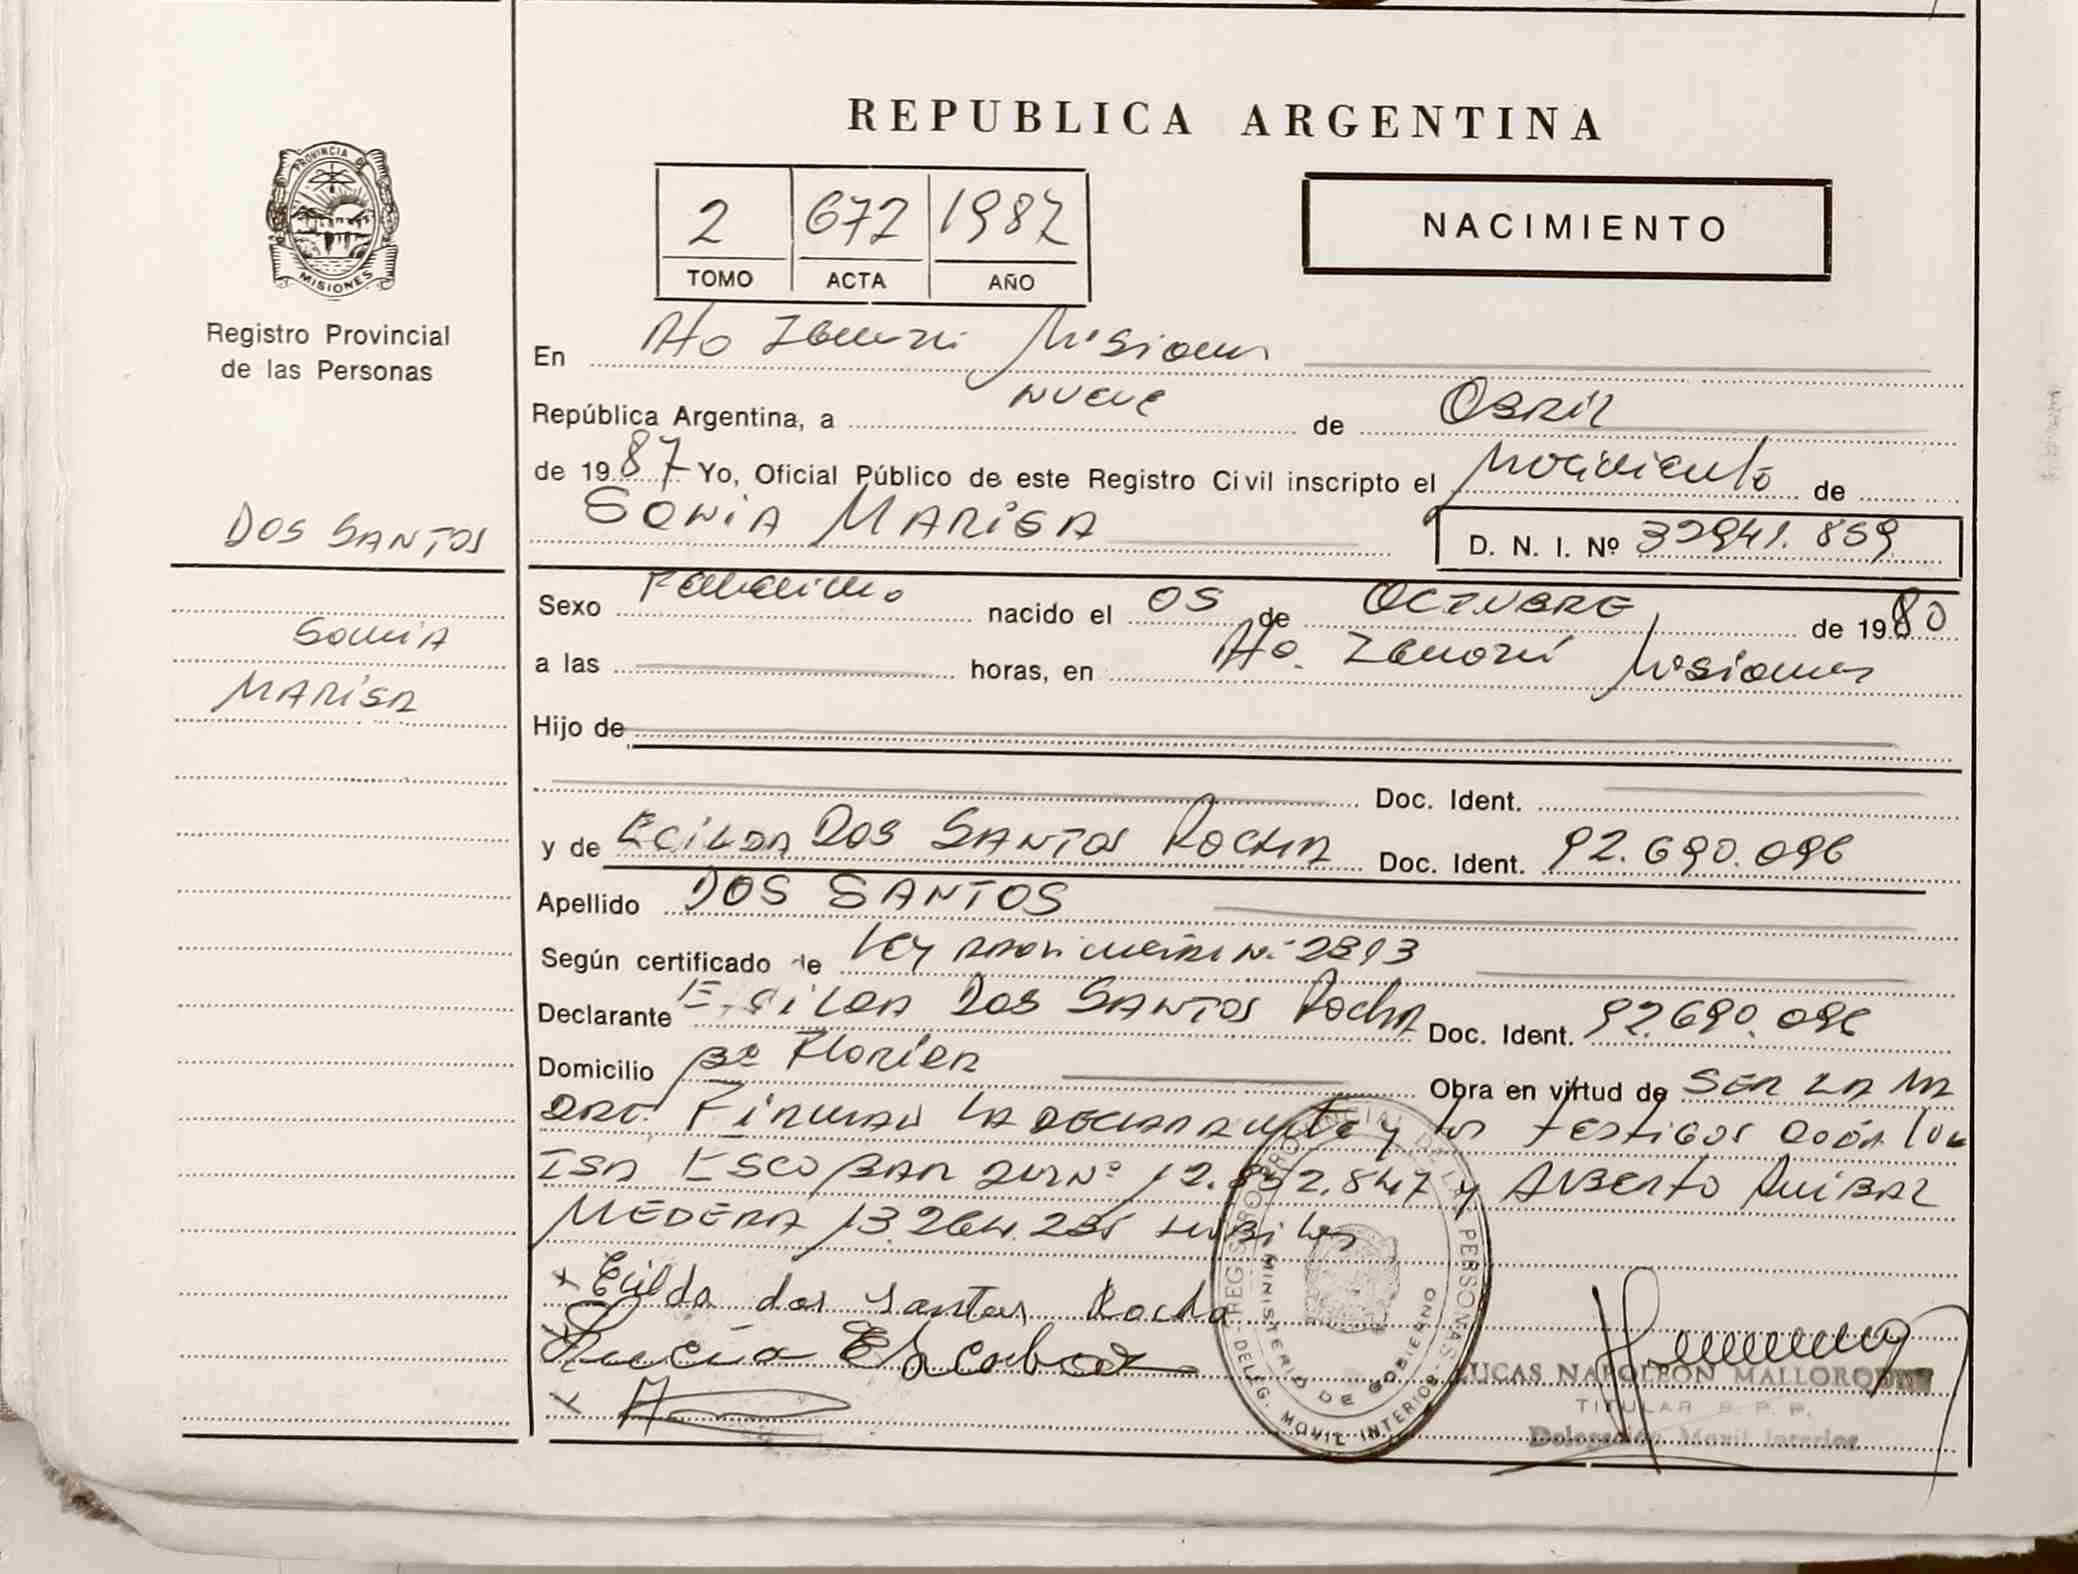 REPUBLICA ARGENTINA
PROVINCIA DE
MISIONES
Registro Provincial
de las Personas
2 672 1987
TOMO ACTA AÑO
NACIMIENTO
En Misiones
República Argentina, a nueve de Abril
de 1987 Yo, Oficial Público de este Registro Civil inscripto el Nacimiento de
SONIA MARISA D. N. I. Nº 32941.859
DOS SANTOS
SONIA
MARISA
Sexo Femenino nacido el 05 de OCTUBRE de 1980
a las horas, en Misiones
Hijo de
Doc. Ident.
y de ECILDA DOS SANTOS ROCHA Doc. Ident. 92.690.096
Apellido DOS SANTOS
Según certificado de Ley 2893
Declarante ECILDA DOS SANTOS Rocha Doc. Ident. 92.690.096
Domicilio Bº Obra en virtud de SER LA MA
DRE. Firman LA DECLARANTE y los TESTIGOS
ESCOBAR Nº 12.852.847 y ALBERTO ANIBAL
MEDERA 13.264.235
x Ecilda dos Santos Rocha
Lucía Escobar
REGISTRO PROVINCIAL DE LAS PERSONAS
MINISTERIO DE GOBIERNO
DELEG. MOVIL INTERIOR
LUCAS NAPOLEON
TITULAR R. P. P.
Delegación Movil Interior